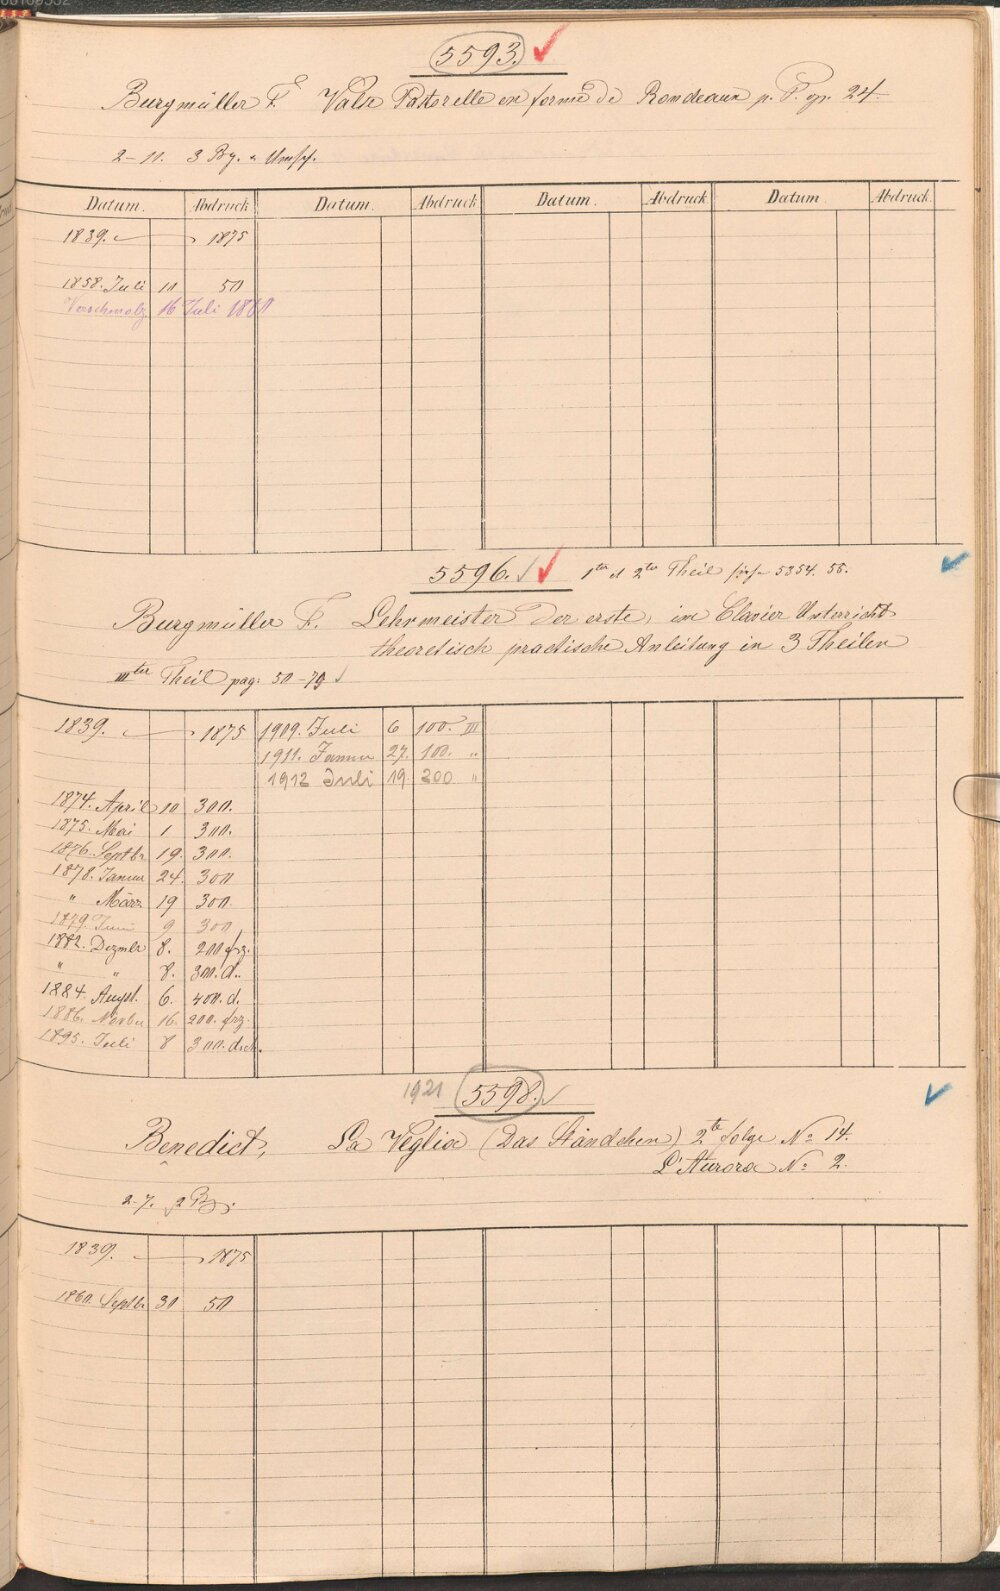 5593.
Burgmüller F. Valse Pastorelle en forme de Rondeaux p. P. op. 24
2-11. 3 Bg. u Umschl.
Datum. Abdruck Datum. Abdruck Datum. Abdruck Datum Abdruck
1839. 1875
1858. Juli 11 50
Verschmolz. 16 Juli
5596. 1ter et 2ter Theil 5354. 55.
Burgmüller F. Lehrmeister der erste, im Clavier Unterricht
theoretisch practische Anleitung in 3 Theilen
IIIter Theil pag: 50-79
1839. 1875 1909. Juli 6 100. III
1911. Januar 27. 100. "
1912 Juli 19. 200 "
1874. April 10 300.
1875. Mai 1 300.
1876. Septbr 19. 300.
1878. Januar 24. 300
" März 19 300.
1879. Juni 9 300
1882. Dezmbr 8. 200 frz.
" " 8. 300. d.
1884. Augst. 6. 400. d.
1886. Novbr 16. 200. frz.
1895. Juli 8 300. dsch.
1921 5598.
Benedict, La Veglia (Das Ständchen) 2te folge No 14.
L'Aurora No 2.
2-7. 2 Bg.
1839. 1875
1860. Septbr 30 50